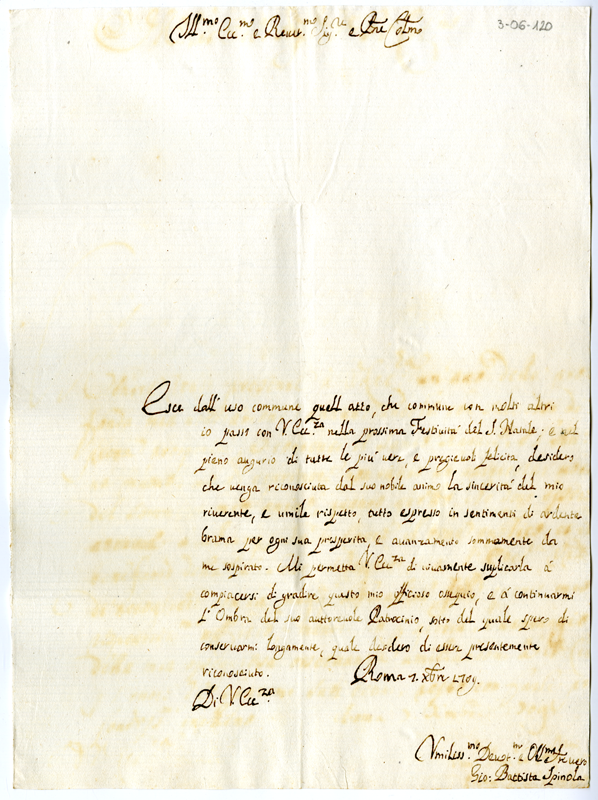 Ill.mo Ecc.mo e Rever.mo Sig.re e Pne Colmo
3-06-120
Esce dall' uso commune quell atto, che commune con molti altri
io passo con V. Ecc.za nella prossima Festiuità del S. Natale. e nel
pieno augurio di tutte le più vere, e pregieuoli felicità, desidero
che venga riconosciuta dal suo nobile animo la sincerità del mio
riverente, e umile rispetto, tutto espresso in sentimenti di ardente
brama per ogni sua prosperità, e auanzamento sommamente da
me sospirato. Mi permetta V. Ecc.za di viuamente suplicarla á
compiacersi di gradire questo mio officioso ossequio, e á continuarmi
l'Ombra del suo auttoreuole Patrocinio, sotto del quale spero di
conseruarmi longamente, quale desidero di esser presentemente
riconosciuto. Roma 7. Xbre 1709.
Di V. Ecc.za
Vmiliss.mo Deuot.mo e Obl.mo Seruero
Gio: Battista Spinola